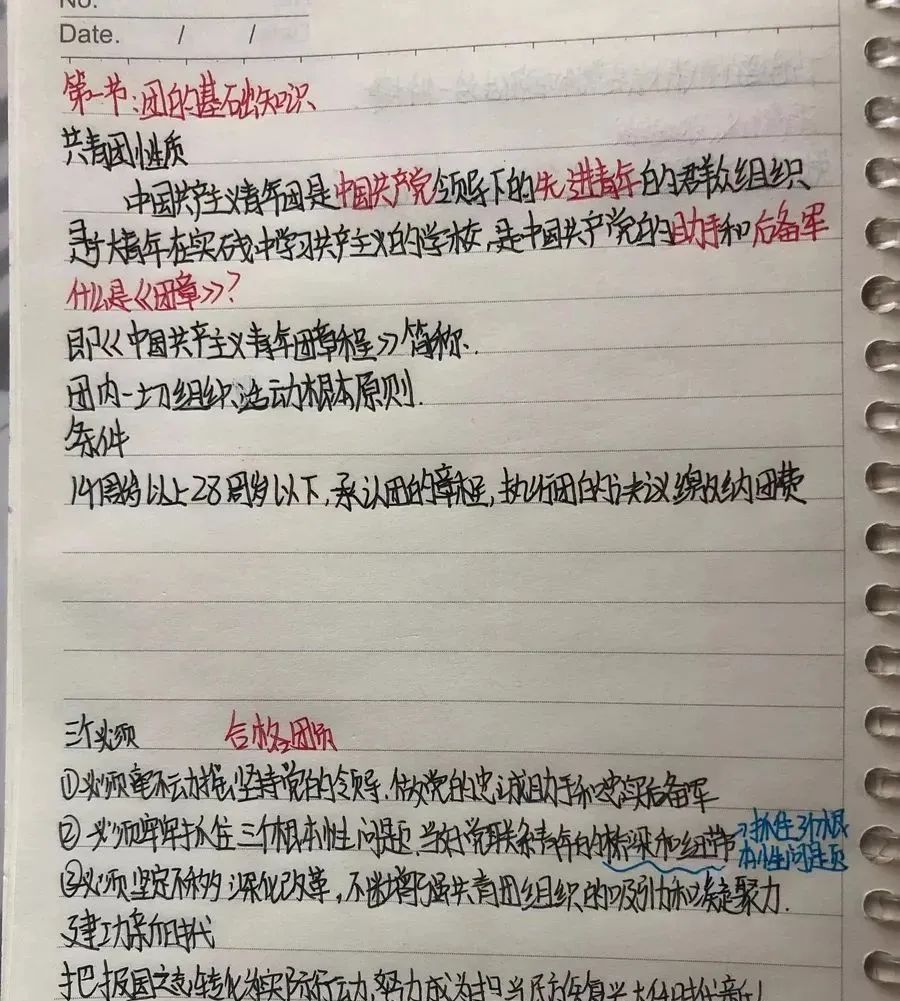 No.
Date. / /
第一节:团的基础知识
共青团性质
中国共产主义青年团是中国共产党领导下的先进青年的群众组织
是广大青年在实践中学习共产主义的学校,是中国共产党的助手和后备军
什么是《团章》?
即《中国共产主义青年团章程》简称.
团内一切组织、活动根本原则.
条件
14周岁以上28周岁以下,承认团的章程,执行团的决议缴纳团费
三个必须 合格团员
①必须毫不动摇坚持党的领导.做党的忠诚助手和忠实后备军
②必须牢牢抓住三个根本性问题.当好党联系青年的桥梁和纽带→抓住3个根
本性问题
③必须坚定不移深化改革,不断增强共青团组织的吸引力和凝聚力.
建功新时代
把报国之志转化为实际行动,努力成为担当民族复兴大任时代新人